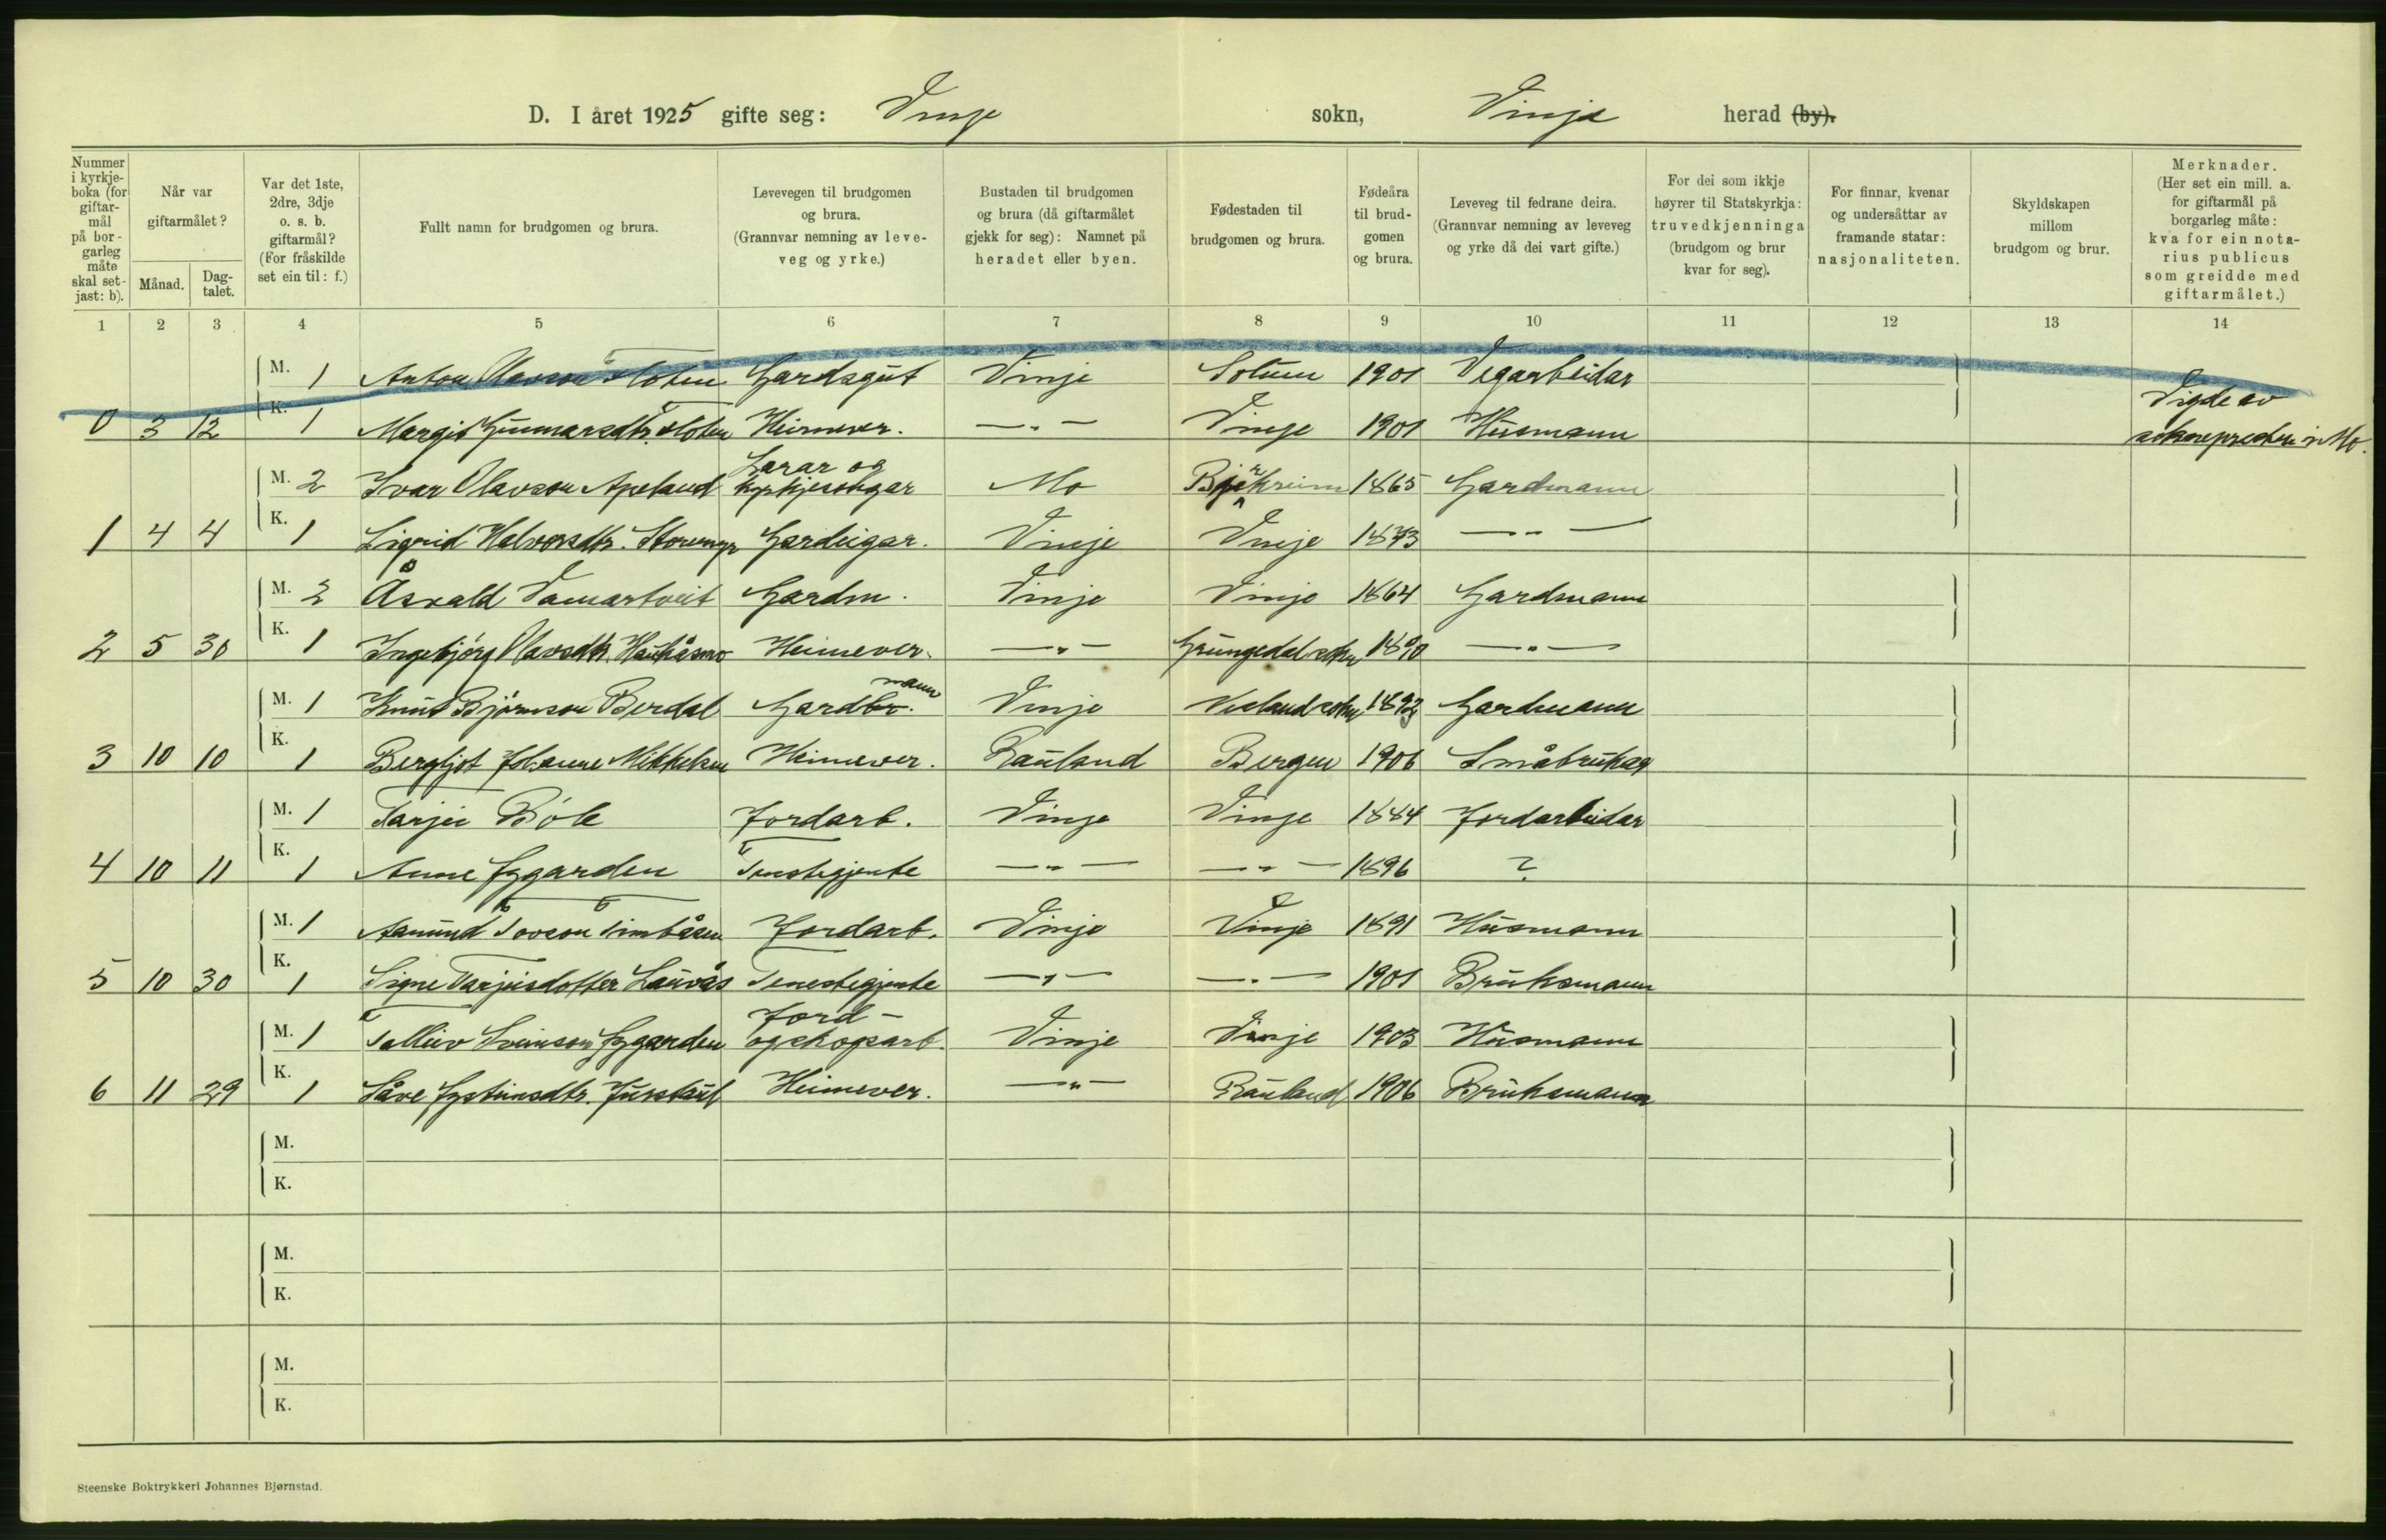 D. I året 1925 gifte seg: Vinje sokn, Vinje herad (by).
Nummer i kyrkjeboka (for giftarmål på borgarleg måte skal setjast: b).
Når var giftarmålet?
Månad.
Dagtalet.
Var det 1ste, 2dre, 3dje o. s. b. giftarmål? (For fråskilde set ein til: f.)
Fullt namn for brudgomen og brura.
Levevegen til brudgomen og brura. (Grannvar nemning av leveveg og yrke.)
Bustaden til brudgomen og brura (då giftarmålet gjekk for seg): Namnet på heradet eller byen.
Fødestaden til brudgomen og brura.
Fødeåra til brudgomen og brura.
Leveveg til fedrane deira. (Grannvar nemning av leveveg og yrke då dei vart gifte.)
For dei som ikkje høyrer til Statskyrkja: truvedkjenninga (brudgom og brur kvar for seg).
For finnar, kvenar og undersåttar av framande statar: nasjonaliteten.
Skyldskapen millom brudgom og brur.
Merknader. (Her set ein mill. a. for giftarmål på borgarleg måte: kva for ein notarius publicus som greidde med giftarmålet.)
1 2 3 4 5 6 7 8 9 10 11 12 13 14
M. 1 Anton Olavson Gardsgut Vinje Solum 1901 Vegarbeidar
0 3 12 K. 1 Margit Gunnarsdtr. Heimever. —"— Vinje 1901 Husmann Vigde av soknepresten i Mo.
M. 2 Ivar Olavson Apeland Lærar og kyrkjesongar Mo Bjerkreim 1865 Gardmann
1 4 4 K. 1 Sigrid Halvorsdtr. Gardeigar. Vinje Vinje 1873 —"—
M. 2 Åsvald Vamartveit Gardm. Vinje Vinje 1864 Gardmann
2 5 30 K. 1 Ingebjörg Olavsdtr. Haukåsmo Heimever. —"— Grungedal sokn 1890 —"—
M. 1 Knut Björnson Berdal Gardbr. mann Vinje Nesland sokn 1892 Gardmann
3 10 10 K. 1 Bergljot Johanne Mikkelsen Heimever. Rauland Bergen 1906 Småbrukar
M. 1 Tarjei Böle Jordarb. Vinje Vinje 1884 Jordarbeidar
4 10 11 K. 1 Anne Jygarden Tenestegjente —"— —"— 1896 ?
M. 1 Aamund Tovson Timbåsen Jordarb. Vinje Vinje 1891 Husmann
5 10 30 K. 1 Signe Tarjeisdotter Lauvås Tenestegjente —"— —"— 1901 Bruksmann
M. 1 Talleiv Sveinson Jygarden Jord- og skogsarb. Vinje Vinje 1903 Husmann
6 11 29 K. 1 Såve Jysteinsdtr. Heimever. —"— Rauland 1906 Bruksmann
M.
K.
M.
K.
M.
K.
Steenske Boktrykkeri Johannes Bjørnstad.